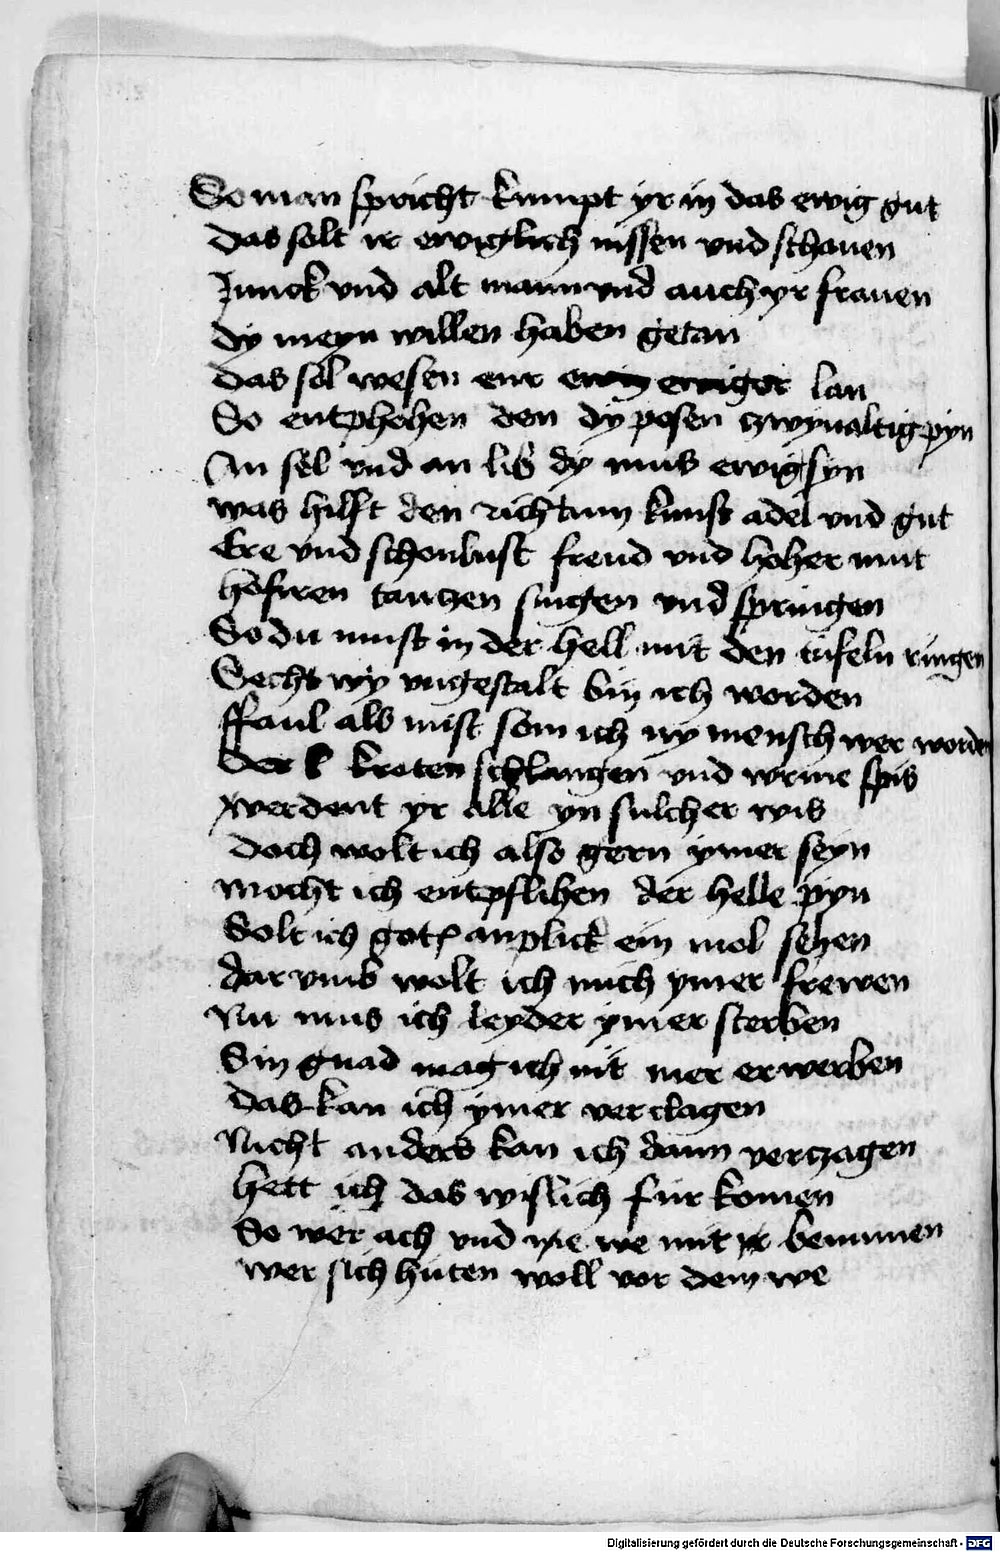 So man spricht kumpt yr in das ewig gut
das solt ir ewiglich nissen vnd schauen
Junck vnd alt mann vnd auch yr frauen
dy meyn willen haben getan
das sol wesen eur ewiger lan
So entphohen den dy posen zwyualtig pyn
An sel vnd an lib dy mus ewig syn
was hilft den richtum kunst adel vnd gut
Ere vnd schonlust freud vnd hoher mut
hofiren tanczen singen vnd springen
So du must in der hell mit den tufeln ringen
Secht wy vngestalt bin ich worden
ffaul als mist som ich ny mensch wer worden
Der k kroten schlangen vnd wrme spis
werdent yr alle yn sulcher wis
doch wolt ich also gern ymer seyn
mocht ich entpflihen der helle pyn
Solt ich gotz anplick ein mol sehen
dar vmb wolt ich mich ymer frewen
Nu mus ich leyder ymer sterben
Sin gnad mag ich nit mer erwerben
das kan ich ymer verclagen
Nicht anders kan ich dann verczagen
hett ich das wislich fur komen
So wer ach vnd we mit benumen
wer sich huten woll vor dem we
Digitalisierung gefördert durch die Deutsche Forschungsgemeinschaft - DFG